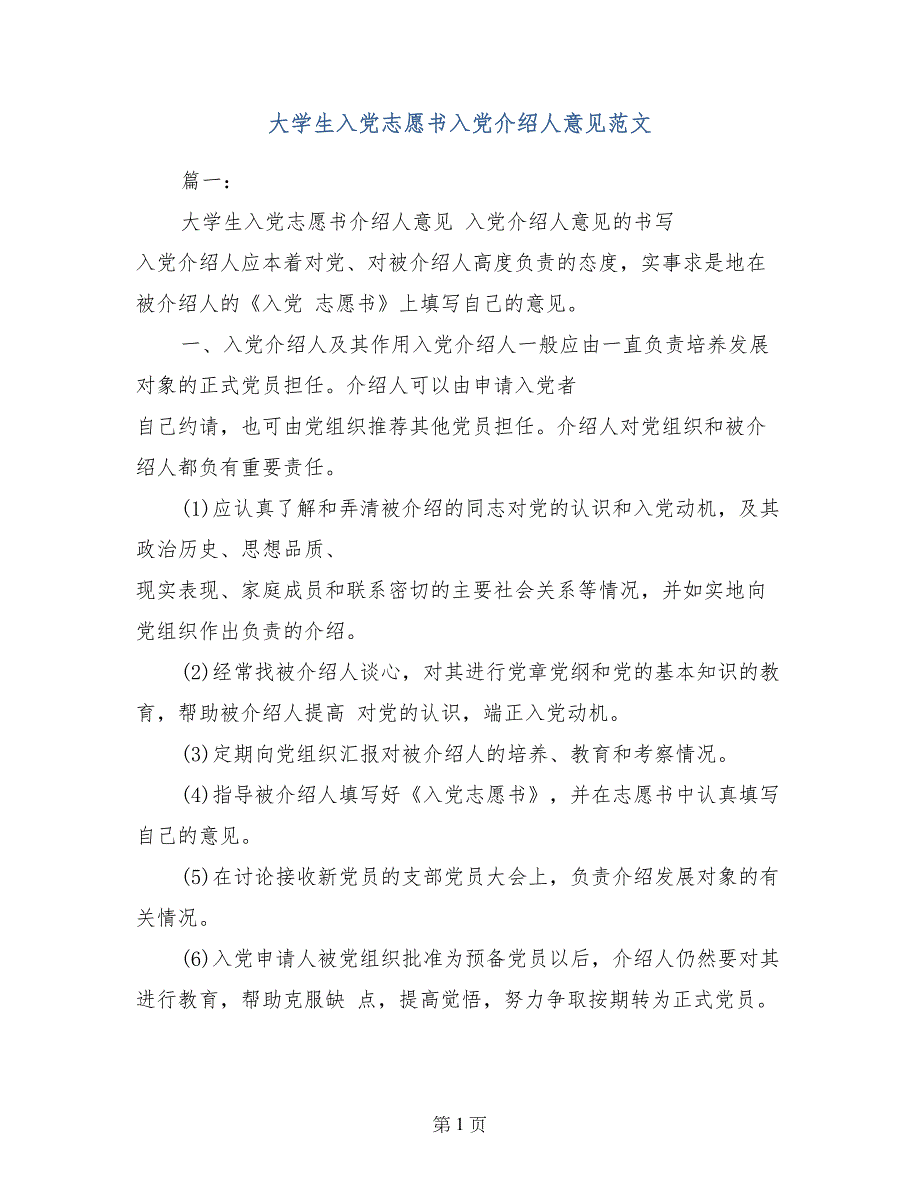 大学生入党志愿书入党介绍人意见范文
篇一：
大学生入党志愿书介绍人意见 入党介绍人意见的书写
入党介绍人应本着对党、对被介绍人高度负责的态度，实事求是地在
被介绍人的《入党 志愿书》上填写自己的意见。
一、入党介绍人及其作用入党介绍人一般应由一直负责培养发展
对象的正式党员担任。介绍人可以由申请入党者
自己约请，也可由党组织推荐其他党员担任。介绍人对党组织和被介
绍人都负有重要责任。
(1)应认真了解和弄清被介绍的同志对党的认识和入党动机，及其
政治历史、思想品质、
现实表现、家庭成员和联系密切的主要社会关系等情况，并如实地向
党组织作出负责的介绍。
(2)经常找被介绍人谈心，对其进行党章党纲和党的基本知识的教
育，帮助被介绍人提高 对党的认识，端正入党动机。
(3)定期向党组织汇报对被介绍人的培养、教育和考察情况。
(4)指导被介绍人填写好《入党志愿书》，并在志愿书中认真填写
自己的意见。
(5)在讨论接收新党员的支部党员大会上，负责介绍发展对象的有
关情况。
(6)入党申请人被党组织批准为预备党员以后，介绍人仍然要对其
进行教育，帮助克服缺 点，提高觉悟，努力争取按期转为正式党员。
第 1 页